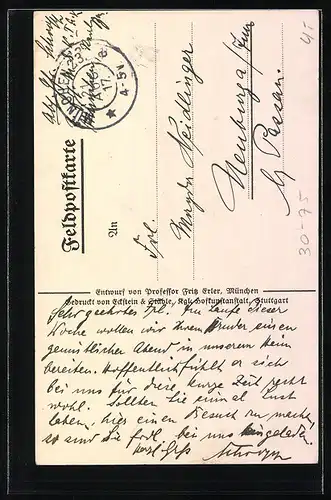 Feldpostkarte
MÜNCHEN
17.
4-5N
An
Frl.
Magda Neidlinger
Neuburg a/Inn
b/ Passau.
4,-
30-75
Entwurf von Professor Fritz Erler, München
Gedruckt von Eckstein & Stähle, Kgl. Hofkupstanstalt, Stuttgart
Sehr geehrtes Frl. Im Laufe dieser
Woche wollen wir Ihrem Bruder einen
gemütlichen Abend in unserem Heim
bereiten. Hoffentlich fühlt er sich
bei uns für diese kurze Zeit recht
wohl. Sollten Sie einmal Lust
haben, hier einen Besuch zu machen,
so sind Sie frdl. bei uns eingeladen.